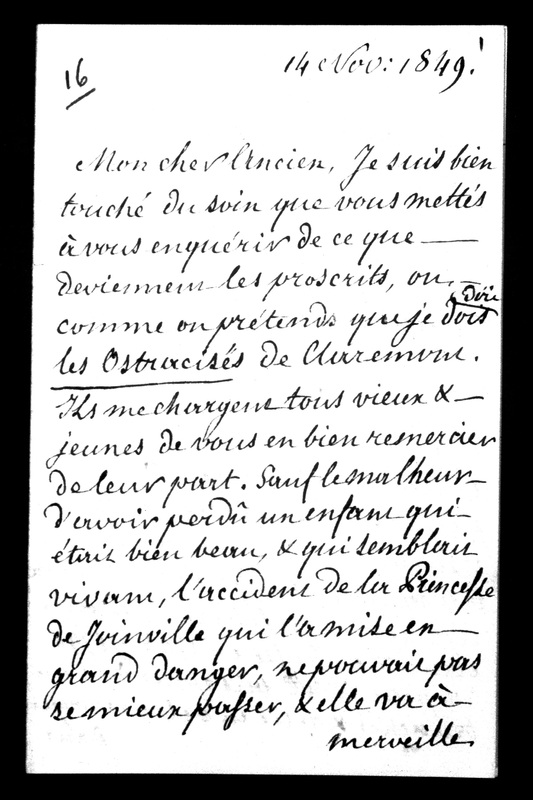 16
14 Nov: 1849!
Mon cher Ancien, Je suis bien
touché du soin que vous mettés
à vous enquérir de ce que —
deviennent les proscrits, ou —
dire
comme on prétends que je dois
les Ostracisés de Claremont.
Ils me chargent tous vieux & —
jeunes de vous en bien remercier
de leur part. Sauf le malheur —
d'avoir perdû un enfant qui —
était bien beau, & qui semblait
vivant, l'accident de la Princesse
de Joinville qui l'a mise en —
grand danger, ne pouvait pas
se mieux passer, & elle va à —
merveille